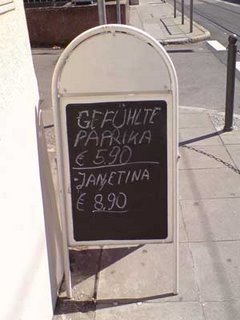 GEFÜHLTE
PAPRIKA
€ 5,90
JANJETINA
€ 8,90